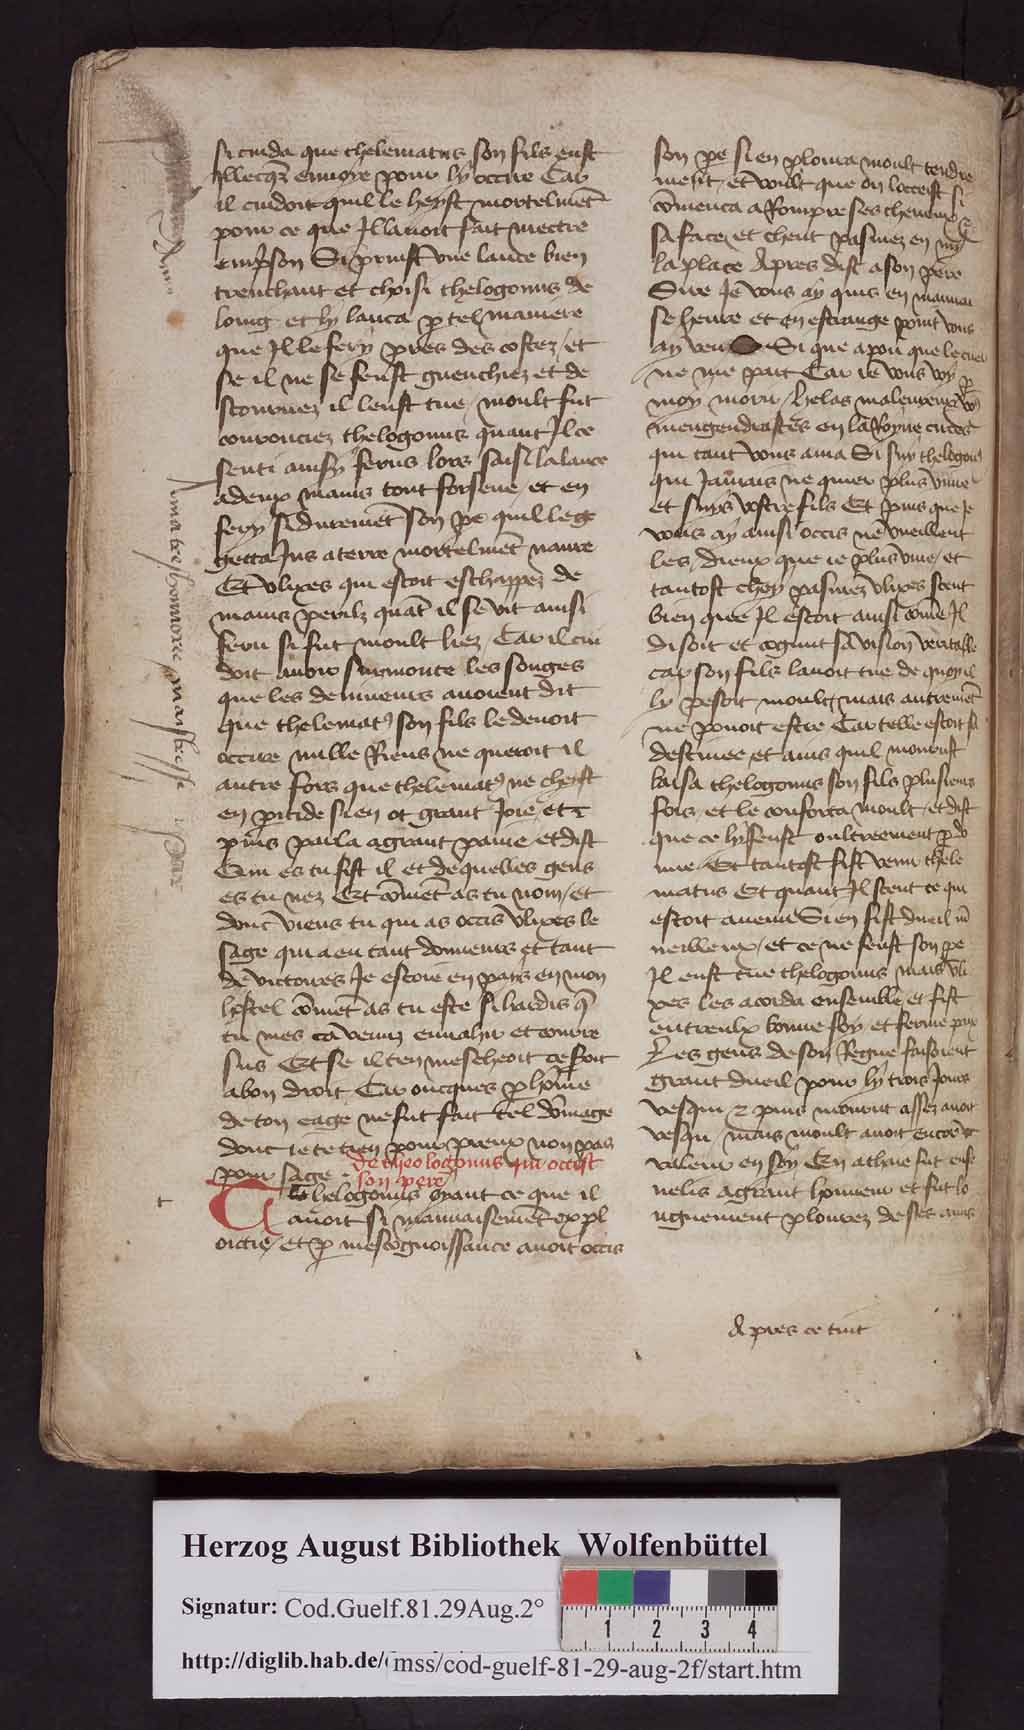 si cuida que thelematus son fils eust
illecq̄s enuoye pour ly occire Car
il cuidoit quil le heyst mortelmēt
pour ce que Il lauoit fait mectre
en p̄son Si prinst vne lance bien
trenchant et choisi thelogonus de
loing et ly lanca p tel maniere
que Il le fery pres des costez / et
se il ne se feust guenchiez et de
stournez il leust tue / moult fut
courouciez thelogonus quant Il ce
senti ainsy ferus lors saisi la lance
a deux mains tout forsene / et en
fery si durement son pe quil le
getta Jus a terre mortelmēt naure
Et vlixes qui estoit eschappez de
mains perilz quāt il se vit ainsi
feru si fut moult liez Car il cui
doit auoir surmonte les songes
que les deuineurs auoient dit
que thelemat9 son fils le deuoit
occire nulle Riens ne queroit il
autre fors que thelemat9 ne cheist
en pitide si en ot grant Joie / et
puis parla a grant paine et dist
Qui es tu fist il et de quelles gens
es tu nez Et cōmēt as tu nom / et
dont viens tu qui as occis vlixes le
sage qui a eu tant donneurs et tant
de victoires Je estoie en pays en mon
hostel cōmēt as tu este si hardis q̄
tu mes ca venuz enuahir et courre
sus Et se il ten mescheoit ce seroit
a bon droit Car oncques p hōme
de ton eage ne fut fait tel dōmage
dont ie te tien pour preux non pas
pour sage
de theologonus qui occist
son pere
Thelogonus oyant ce que il
auoit si mauuaisemēt expl
oictie / et p mescognoissance auoit occis
son pe si en ploura moult tendre
ment / et voult que on locceist si
cōmenca a Rompre ses cheueux
sa face et cheut pasmez en my
la place Apres dist a son pere
Sire Je vous ay quis en mauuai
se heure et en estrange point vous
ay veu Si que a pou que le cuer
ne me part Car ie vous voy p
moy morir / helas maleureux vo9
mengendrastes en la Royne circes
qui tant vous ama Si suy thelogon9
qui Jamais ne quier plus viure
et suys vostre fils Et puis que Je
vous ay ainsi occis ne vueillent
les dieux que ie plus viue / et
tantost chey pasmez vlixes sceut
bien que Il estoit ainsi cōme Il
disoit et cognut sa vision veritable
car son fils lauoit tue de quoy il
ly pesoit moult mais autremēt
ne pouoit estre Car telle estoit sa
destinee et ains quil mourust
baisa thelogonus son fils plusieurs
fois et le conforta moult / et dist
que ce ly feust oultreement p̄do
nne / Et tantost fist venir thele
matus Et quant Il sceut ce qui
estoit auenu Si en fist dueil m̄
neilleux / et ce ne feust son pe
Il eust tue thelogonus mais vli
xes les acorda ensemble et fist
entreulx bonne foy et ferme paix
Les gens de son Regne faisoient
grant dueil pour ly trois Jours
vesqui z puis mourut assez auoit
vescu / mais moult auoit encore
valeur en soy En athue fut ense
uelis a grant honneur et fut lo
nguement plourez de ses amis
Apres ce tuit
Herzog August Bibliothek Wolfenbüttel
Signatur: Cod.Guelf.81.29Aug.2°
http://diglib.hab.de/mss/cod-guelf-81-29-aug-2f/start.htm
1 2 3 4